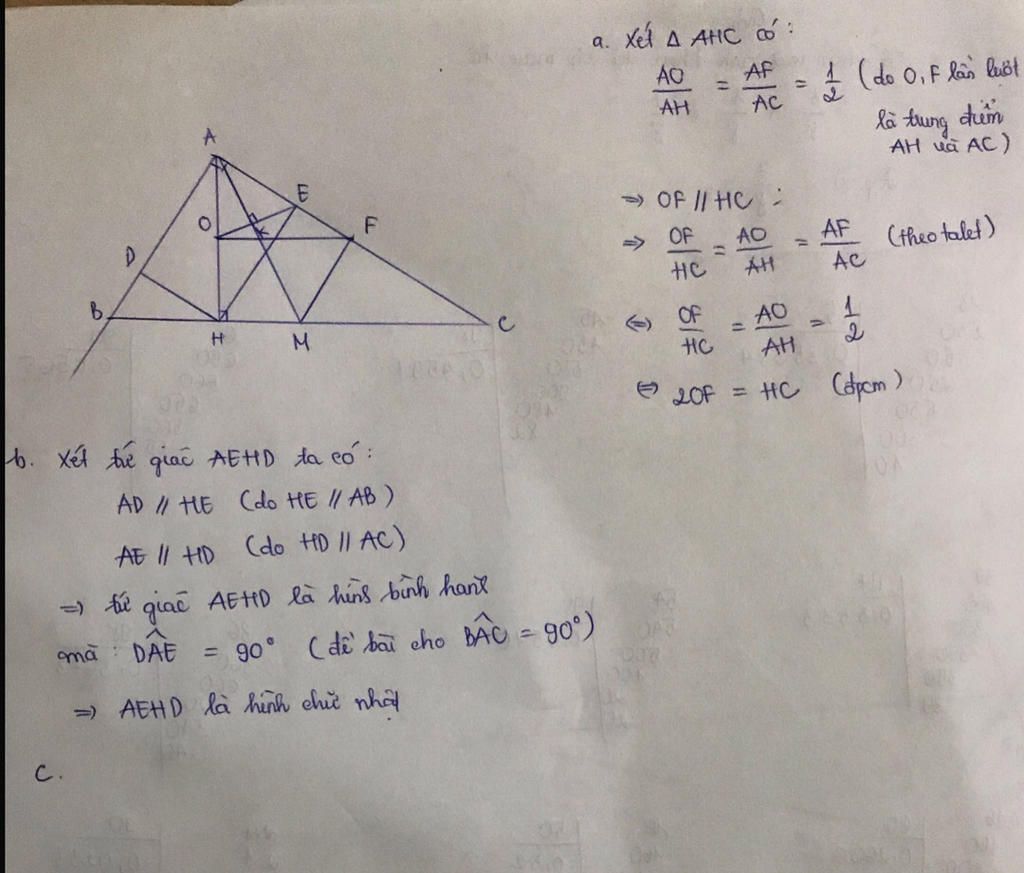 a. Xét Δ AHC có:
AO/AH = AF/AC = 1/2 (do O, F lần lượt
là trung điểm
AH và AC)
⇒ OF // HC :
⇒ OF/HC = AO/AH = AF/AC (theo talet)
⇔ OF/HC = AO/AH = 1/2
⇔ 2OF = HC (đpcm)
A
E
O
F
D
B
H
M
C
b. Xét tứ giác AEHD ta có:
AD // HE (do HE // AB)
AE // HD (do HD // AC)
⇒ tứ giác AEHD là hình bình hành
mà : DÂE = 90° (đề bài cho BÂC = 90°)
⇒ AEHD là hình chữ nhật
c.